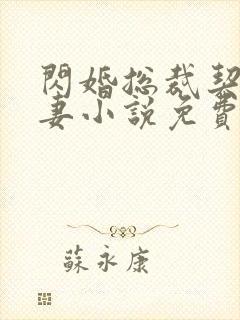 閃婚總裁契
妻小說免費
蘇永康